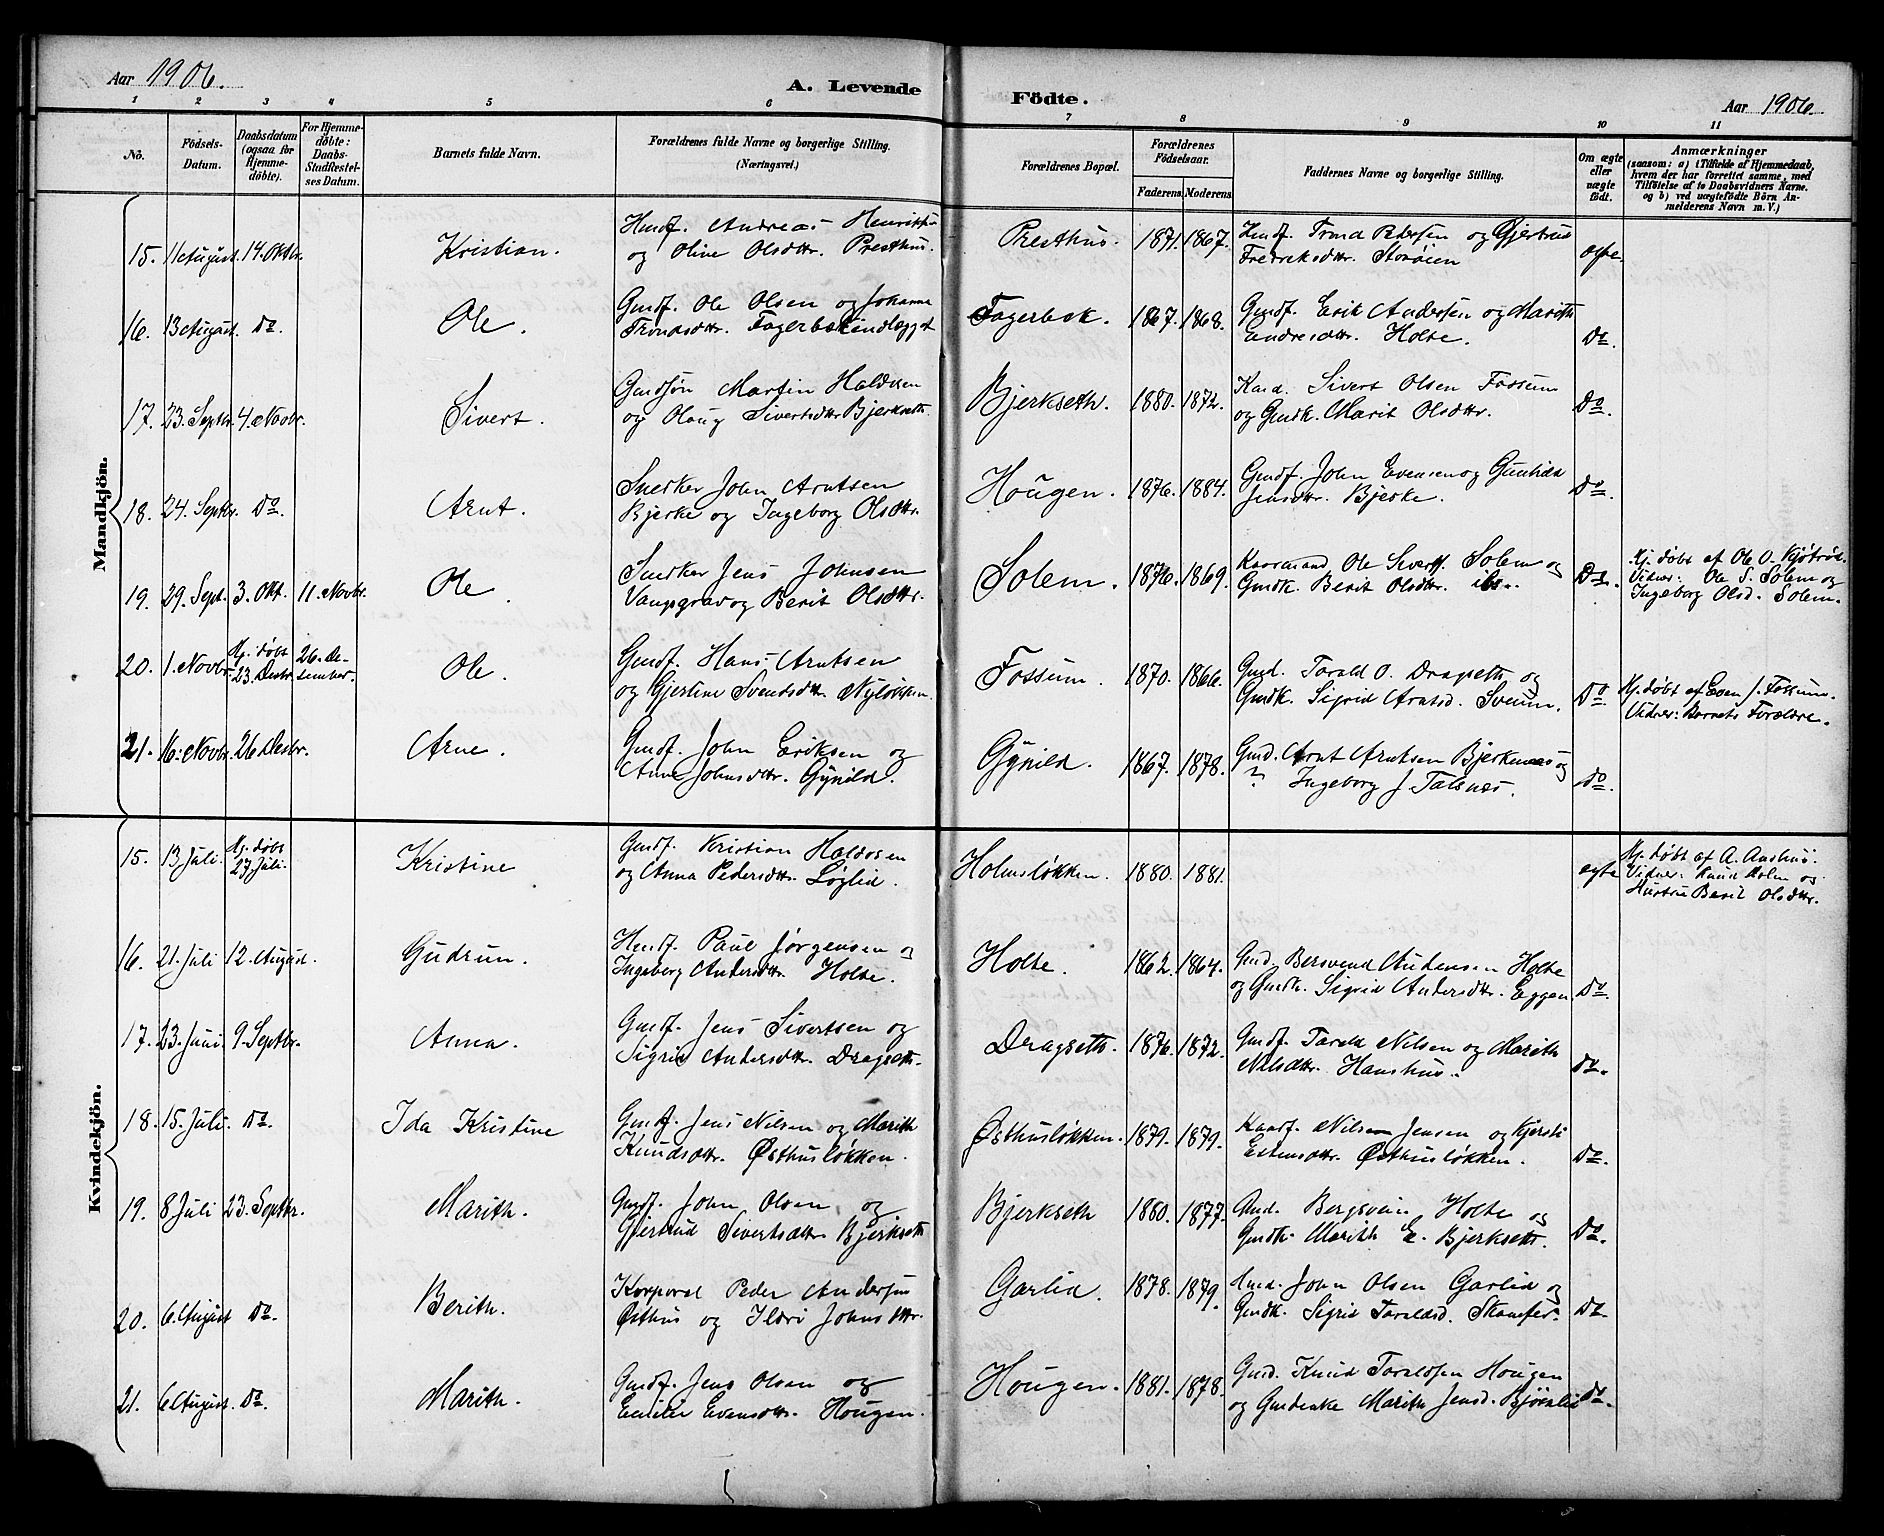 Aar 1906.
A. Levende Födte.
Aar 1906.
1 2 3 4 5 6 7 8 9 10 11
No.
Födsels-Datum.
Daabsdatum (ogsaa for Hjemme-döbte).
For Hjemme-döbte: Daabs-Stadfæstel-ses Datum.
Barnets fulde Navn.
Forældrenes fulde Navne og borgerlige Stilling.
(Næringsvei.)
Forældrenes Bopæl.
Forældrenes Födselsaar.
Faderens Moderens
Faddernes Navne og borgerlige Stilling.
Om ægte eller uægte födt.
Anmærkninger
(saasom: a) i Tilfælde af Hjemmedaab,
hvem der har forrettet samme, med
Tilföielse af to Daabsvidners Navne.
og b) ved uægtefödte Börn An-
melderens Navn m. V.)
Mandkjön.
15. 11 August. 14. Oktbr. Kristian.
Andreas Henriks
og Oline Olsdttr. Presthus.
Presthus. 1871. 1867.
Trond Pedersen og Gjertrud
Fredriksdttr. Storøien
16. 13 August. Do. Ole.
Gmdf. Ole Olsen og Johanna
Trondsdttr. Fagerbekindlægget
Fagerbek. 1867. 1868.
Gmdf. Erik Andersen og Marith
Endresdttr. Holte. Do.
17. 23. Septbr. 4. Novbr. Sivert.
Martin Haldosen
og Olaug Sivertsdttr. Bjerkseth.
Bjerkseth. 1880. 1872.
Sivert Olsen Fossum
og Gmdk. Marit Olsdttr. Do.
18. 24. Septbr. Do. Arnt.
Snedker John Arntsen
Bjerke og Ingeborg Olsdttr.
Hougen. 1876. 1884.
Gmdf. John Evensen og Gunhild
Jensdttr. Bjerke. Do.
19. 29. Sept. 3. Okt. 11. Novbr. Ole.
Snedker Jens Johnsen
Vangsgrav og Berit Olsdttr.
Solem. 1876. 1869.
Kaarmand Ole Siverts. Solem og
Gmdk. Berit Olsdttr. ibd. Do.
Hj. døbt af Ole O.
Vidner: Ole S. Solem og
Ingeborg Olsd. Solem.
20. 1. Novbr. Hj. døbt 23. Desbr. 26. De-sember. Ole.
Gmdf. Hans Arntsen
og Gjertine Svendsdttr. Nyløkken.
Fossum. 1870. 1866.
Gmd. Tarald O. Dragseth og
Gmdk. Sigrid Arntsd. Sveum. Do.
Hj. døbt af Even J. Fossum.
Vidner: Barnets Forældre.
21. 16. Novbr. 26 Desbr. Arne.
Gmdf. John Eriksen og
Anne Johnsdttr. Gynild.
Gynild. 1867. 1878.
Gmd. Arnt Arntsen Bjerkenæs og
? Ingeborg J. Talsnes. Do.
Kvindekjön.
15. 13 Juli. Hj. døbt 27. Juli. Kristine
Gmdf. Kristian Haldosen
og Anna Pedersdttr. Løglid.
Holmsløkken. 1880. 1881.
egte
Hj. døbt af A. Aashus.
Vidner: Knud Holm og
Hustru Berit Olsdttr.
16. 21. Juli 12. August. Gudrun.
Paul Jørgensen og
Ingeborg Andersdttr. Holte.
Holte. 1862. 1864.
Gmd. Bersvend Andersen Holte
og Gmdk. Sigrid Andersdttr. Eggen. Do.
17. 23. Juni 9. Septbr. Anna.
Gmdf. Jens Sivertsen og
Sigrid Andersdttr. Dragseth.
Dragseth. 1876. 1872.
Gmdf. Tarald Nilsen og Marith
Nilsdttr. Hanshus. Do.
18. 15. Juli. Do. Ida Kristine
Gmdf. Jens Nilsen og Marith
Knudsdttr. Østhusløkken.
Østhusløkken. 1879. 1879.
Kaarf. Nils Jensen og Kjersti
Estensdttr. Østhusløkken. Do.
19. 8 Juli 23. Septbr. Marith.
Gmdf. John Olsen og
Gjertrud Sivertsdttr. Bjerkseth
Bjerkseth 1880. 1877.
Gmd. Bergsvein Holte og
Gmdk. Marith E. Bjerkseth. Do.
20. 6. August Do. Berith.
Korporal Peder Andersen
Østhus og Ildri Johnsdttr.
Garlid. 1878. 1879.
Gmd. John Olsen Garlid og
Gmdk. Sigrid Taraldsd. Skamfer. Do.
21. 6 August. Do. Marith.
Gmdf. Jens Olsen og
Evensdttr. Hougen.
Hougen. 1881. 1878.
Gmd. Knud Taraldsen Hougen
og Gmdenke Marith Jensd. Bjørnli Do.